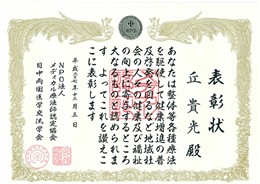 表彰状
丘貴光殿
あなたは整体等各種療法
を駆使して健康増進の普
及啓発を図るなど地域社
会の人々の健康及び福祉
の向上に寄与するところ
大なるものと認められま
す よってこれを讃しこ
こに表彰します
平成二十七年十二月五日
NPO法人
メディカル療法師認定協会
日中両国医学交流学会
NPO